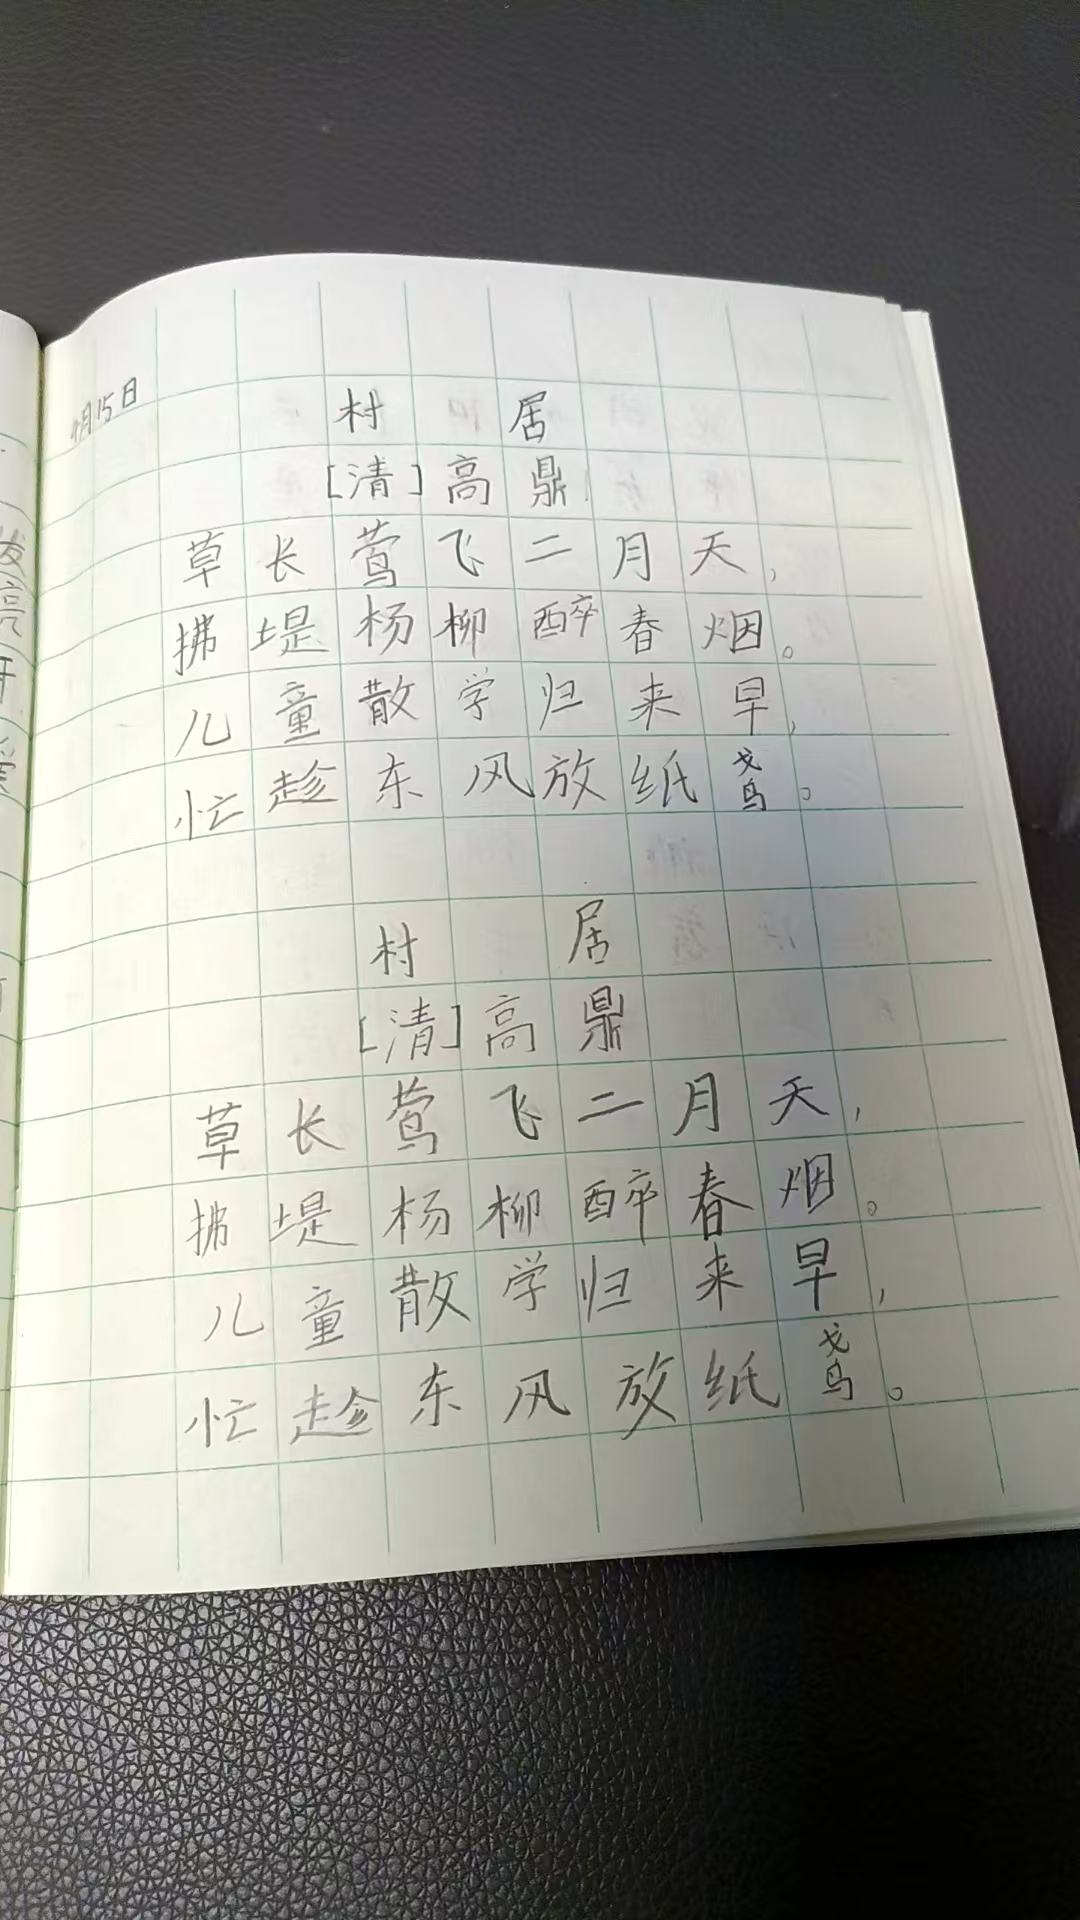 4月15日
村 居
[清]高鼎
草长莺飞二月天,
拂堤杨柳醉春烟。
儿童散学归来早,
忙趁东风放纸鸢。
村 居
[清]高鼎
草长莺飞二月天,
拂堤杨柳醉春烟。
儿童散学归来早,
忙趁东风放纸鸢。